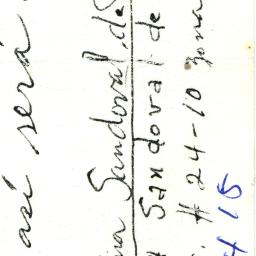 así será
na Sandoval de
Sandoval de
# 24-10 zona
4 15